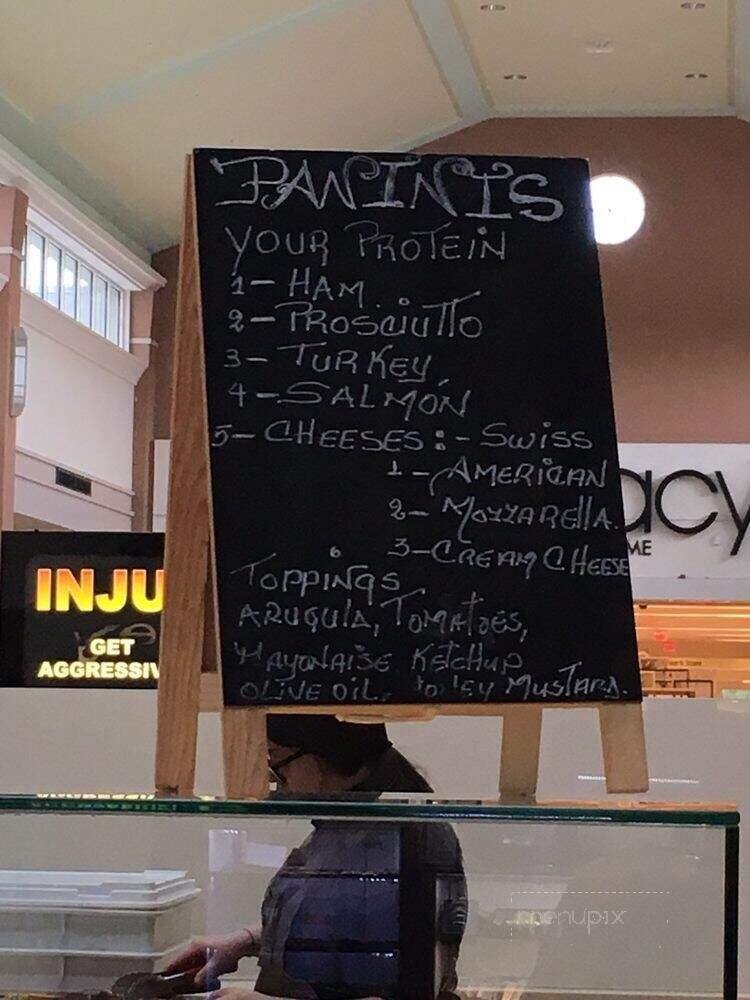 PANINIS
YOUR PROTEIN
1- HAM
2- PROSCIUTTO
3- TURKEY
4- SALMON
5- CHEESES: - SWISS
1 - AMERICAN
2- MOZZARELLA
3-CREAM CHEESE
TOPPINGS
ARUGULA, TOMATOES,
MAYONAISE KETCHUP
OLIVE OIL. MUSTARD.
acy
ME
INJU
GET
AGGRESSIV
menupix